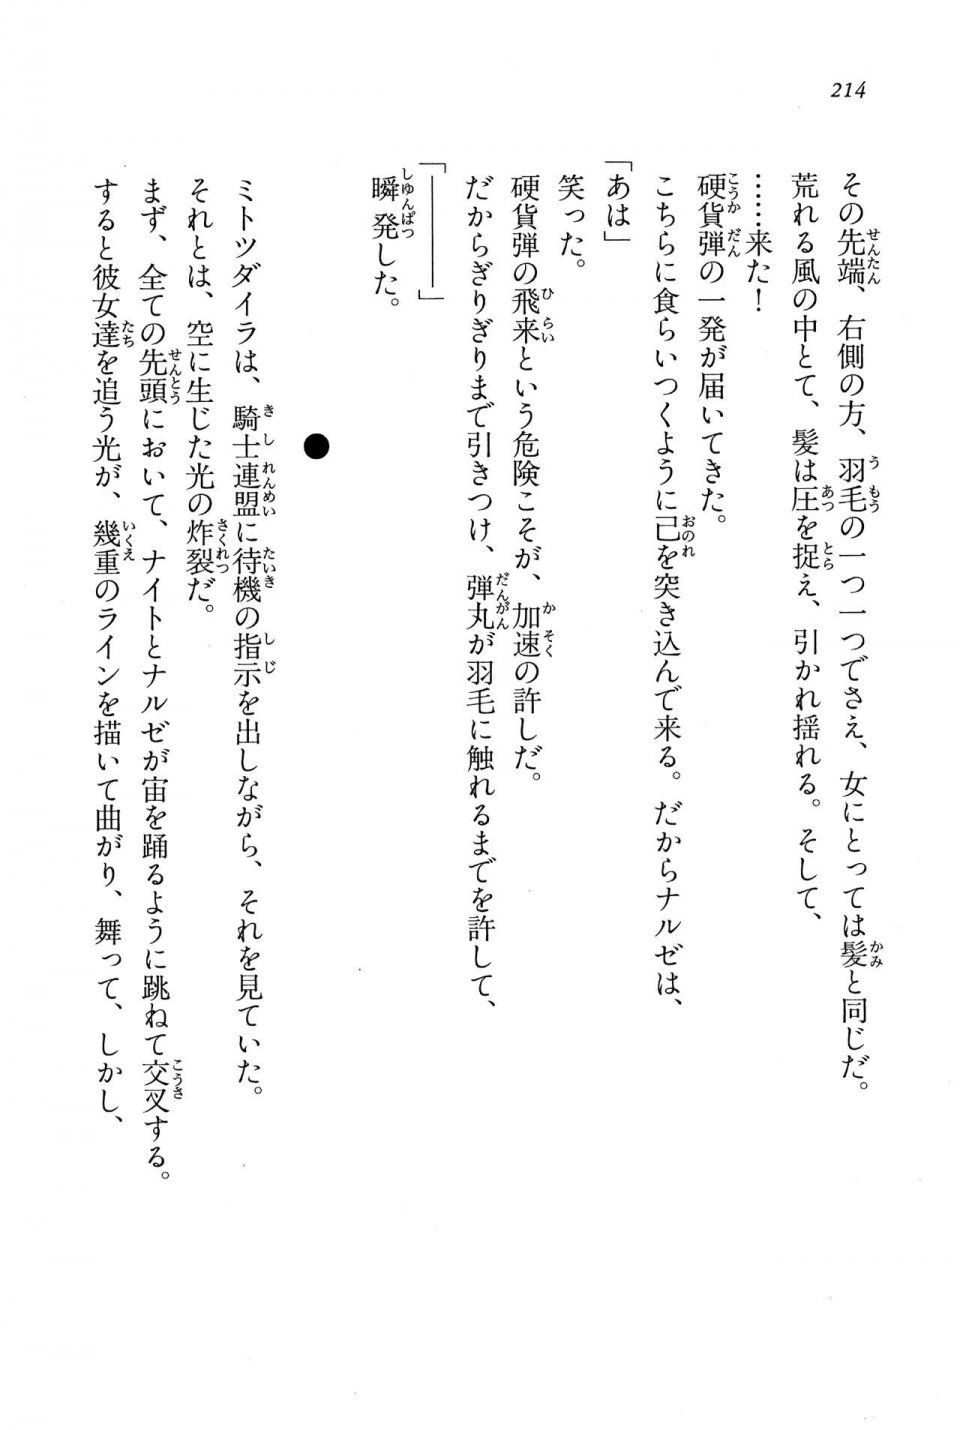 214
その先端、右側の方、羽毛の一つ一つでさえ、女にとっては髪と同じだ。
荒れる風の中とて、髪は圧を捉え、引かれ揺れる。そして、
……来た！
硬貨弾の一発が届いてきた。
こちらに食らいつくように己を突き込んで来る。だからナルゼは、
「あは」
笑った。
硬貨弾の飛来という危険こそが、加速の許しだ。
だからぎりぎりまで引きつけ、弾丸が羽毛に触れるまでを許して、
「――――」
瞬発した。
●
ミトツダイラは、騎士連盟に待機の指示を出しながら、それを見ていた。
それとは、空に生じた光の炸裂だ。
まず、全ての先頭において、ナイトとナルゼが宙を踊るように跳ねて交叉する。
すると彼女達を追う光が、幾重のラインを描いて曲がり、舞って、しかし、